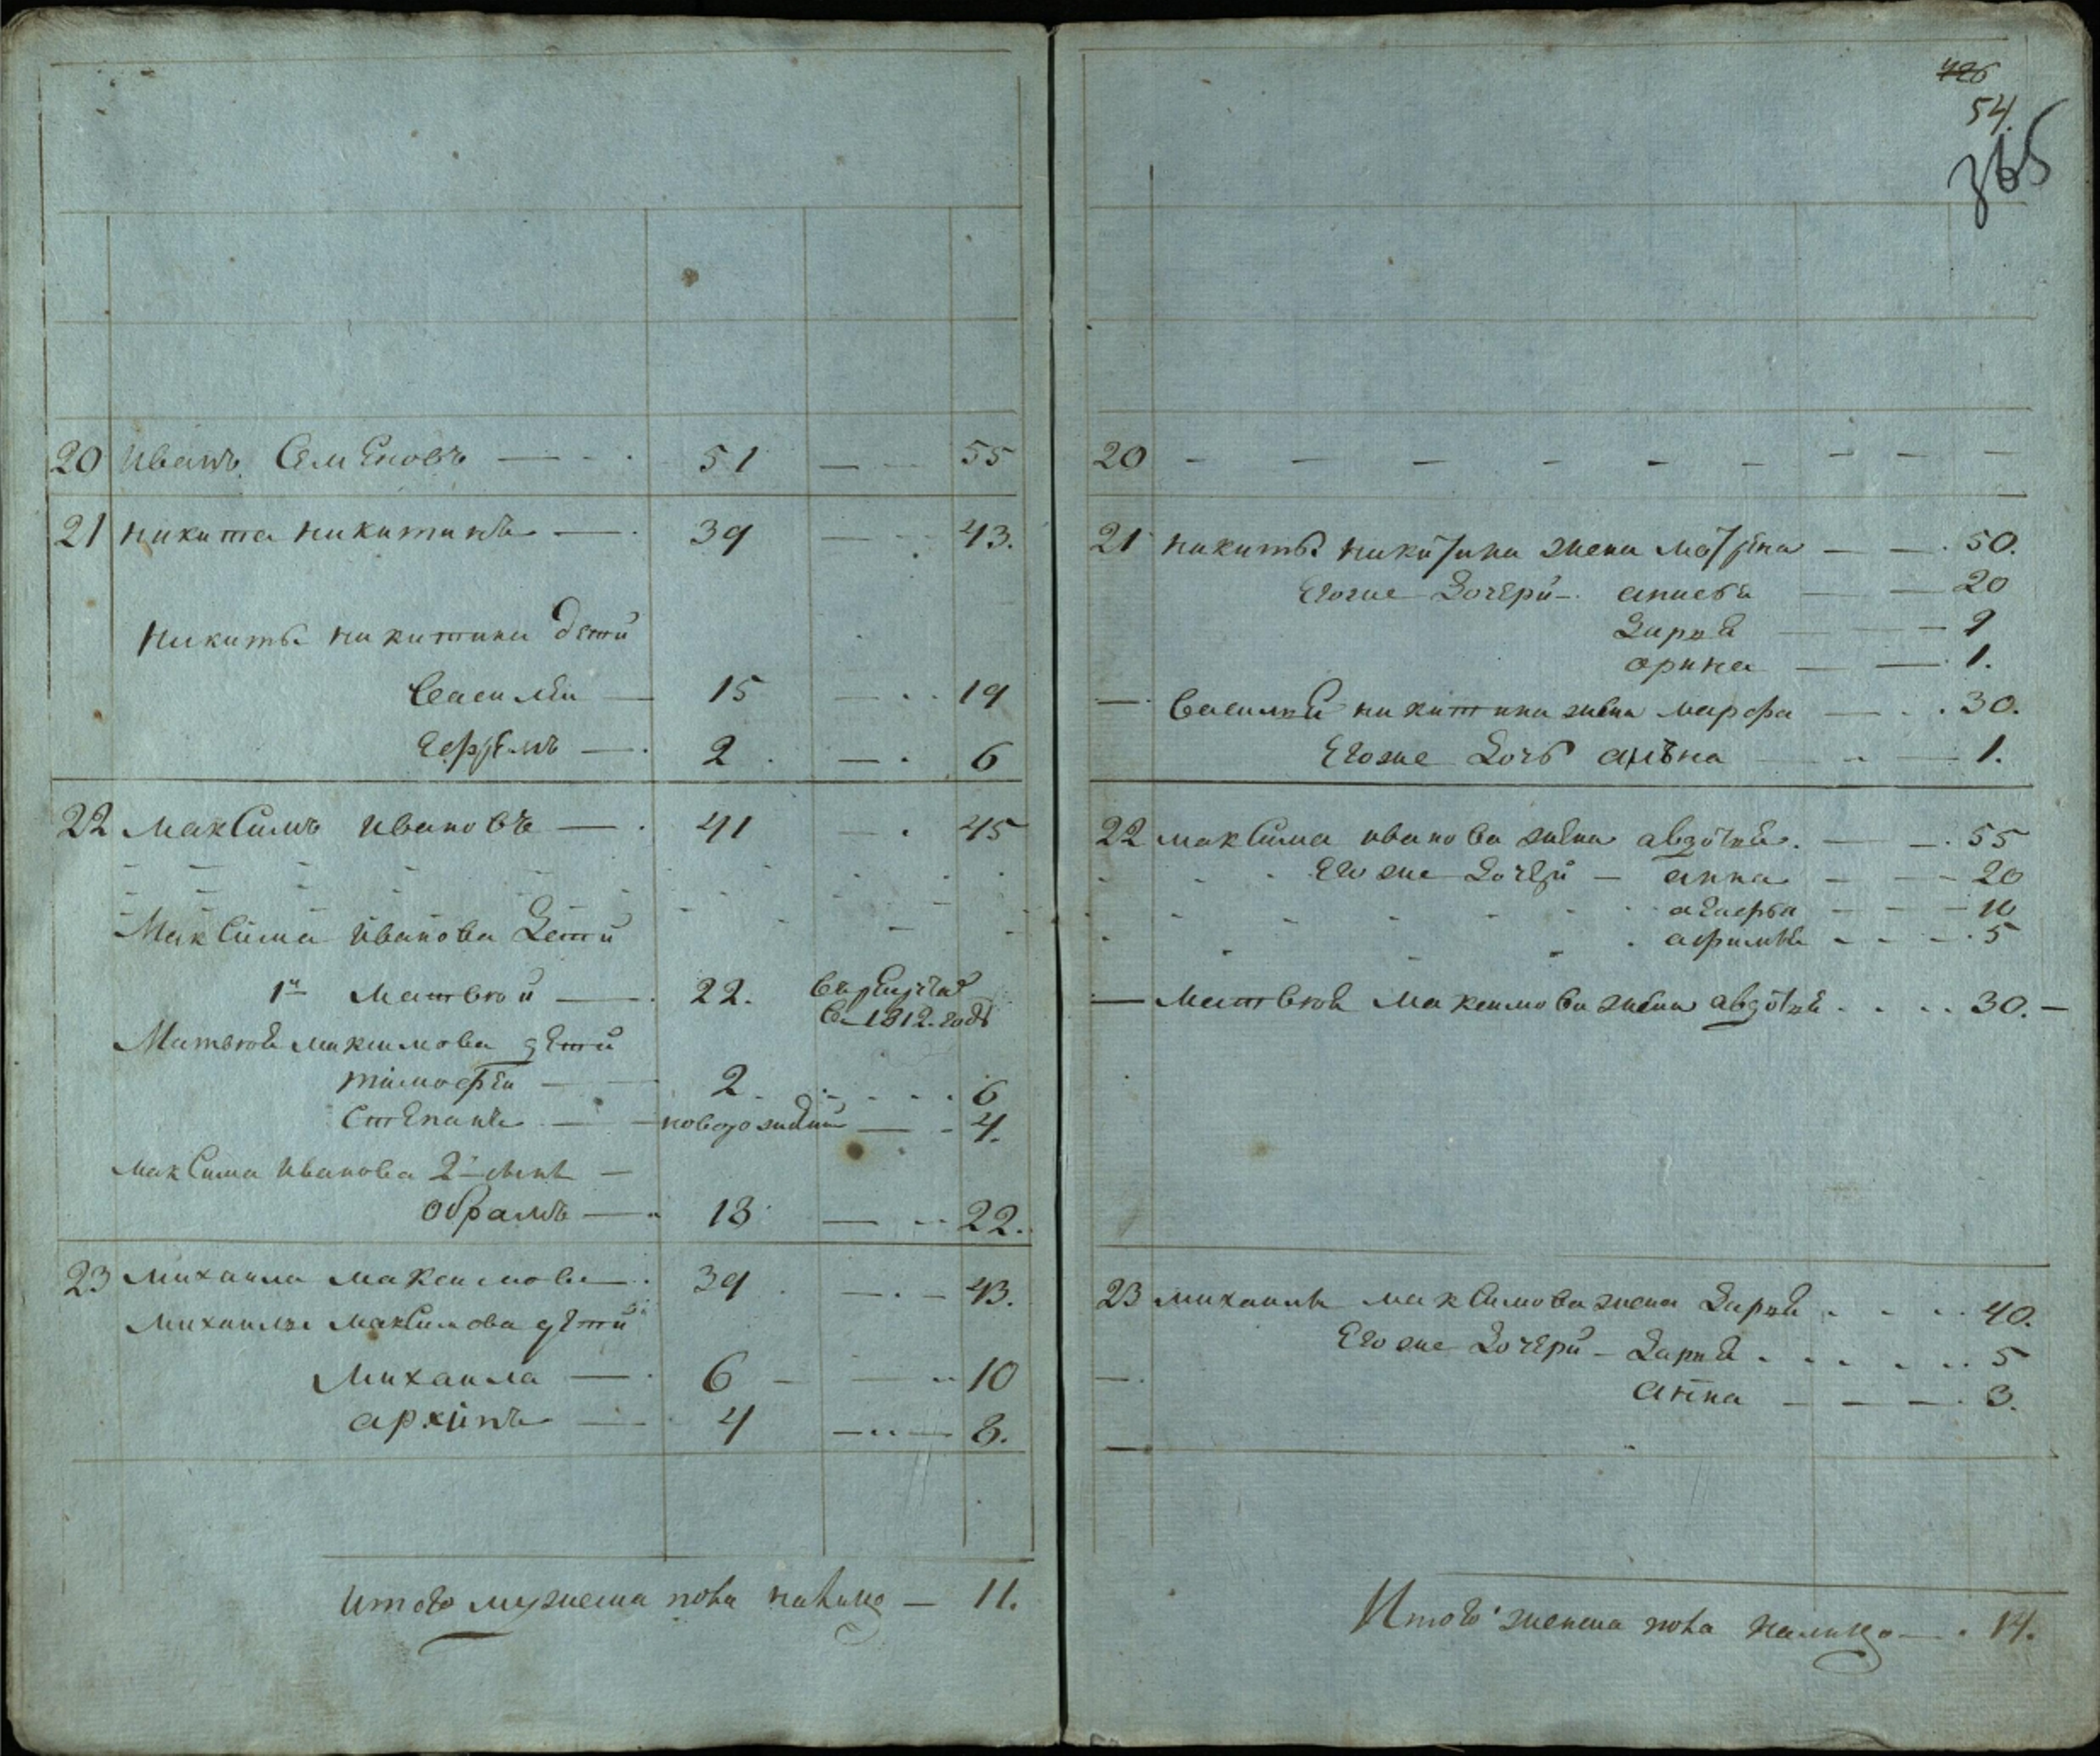 20 Иванъ Семеновъ 51 55
21 никита никитинъ 39 43.
никиты никитина дети
Василеи 15 19
Ефремъ 2 6
22 МакСимъ Ивановъ 41 45
МакСима Иванова Дети
1й Матвеи 22. в рекруты
в 1812. годе
Матвея максимова дети
тимофеи 2 6
Степанъ новорожденъ 4.
МакСима Иванова 2й сынъ
обрамъ 18 22.
23 михаила максимовъ 39 43.
михаилы макСимова дети
Михаила 6 10
архипъ 4 8.
Итого мужеска пола налицо 11.
54.
365
20
21 никиты никитина жена матрена 50.
Егоже Дочери анисья 20
Дарья 9
орина 1.
Василья никитина жена марфа 30.
Егоже Дочь алѣна 1.
22 макСима иванова жена авдотья 55
Егоже Дочери анна 20
агафья 10
афимья 5
Матвея максимова жена авдотья 30.
23 михаилы макСимова жена Дарья 40.
Егоже Дочери Дарья 5
анна 3.
Итого женска пола налицо 14.